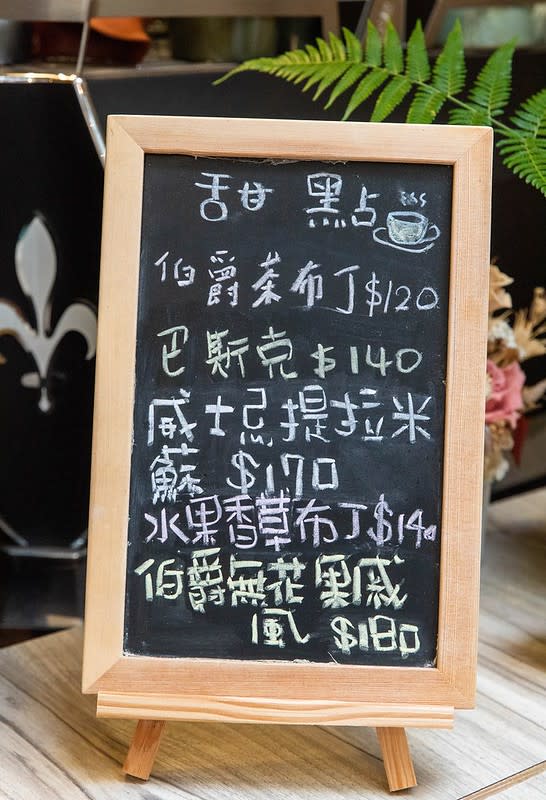 甜 點
伯爵茶布丁$120
巴斯克$140
威士忌提拉米
蘇 $170
水果香草布丁$140
伯爵無花果戚
風 $180